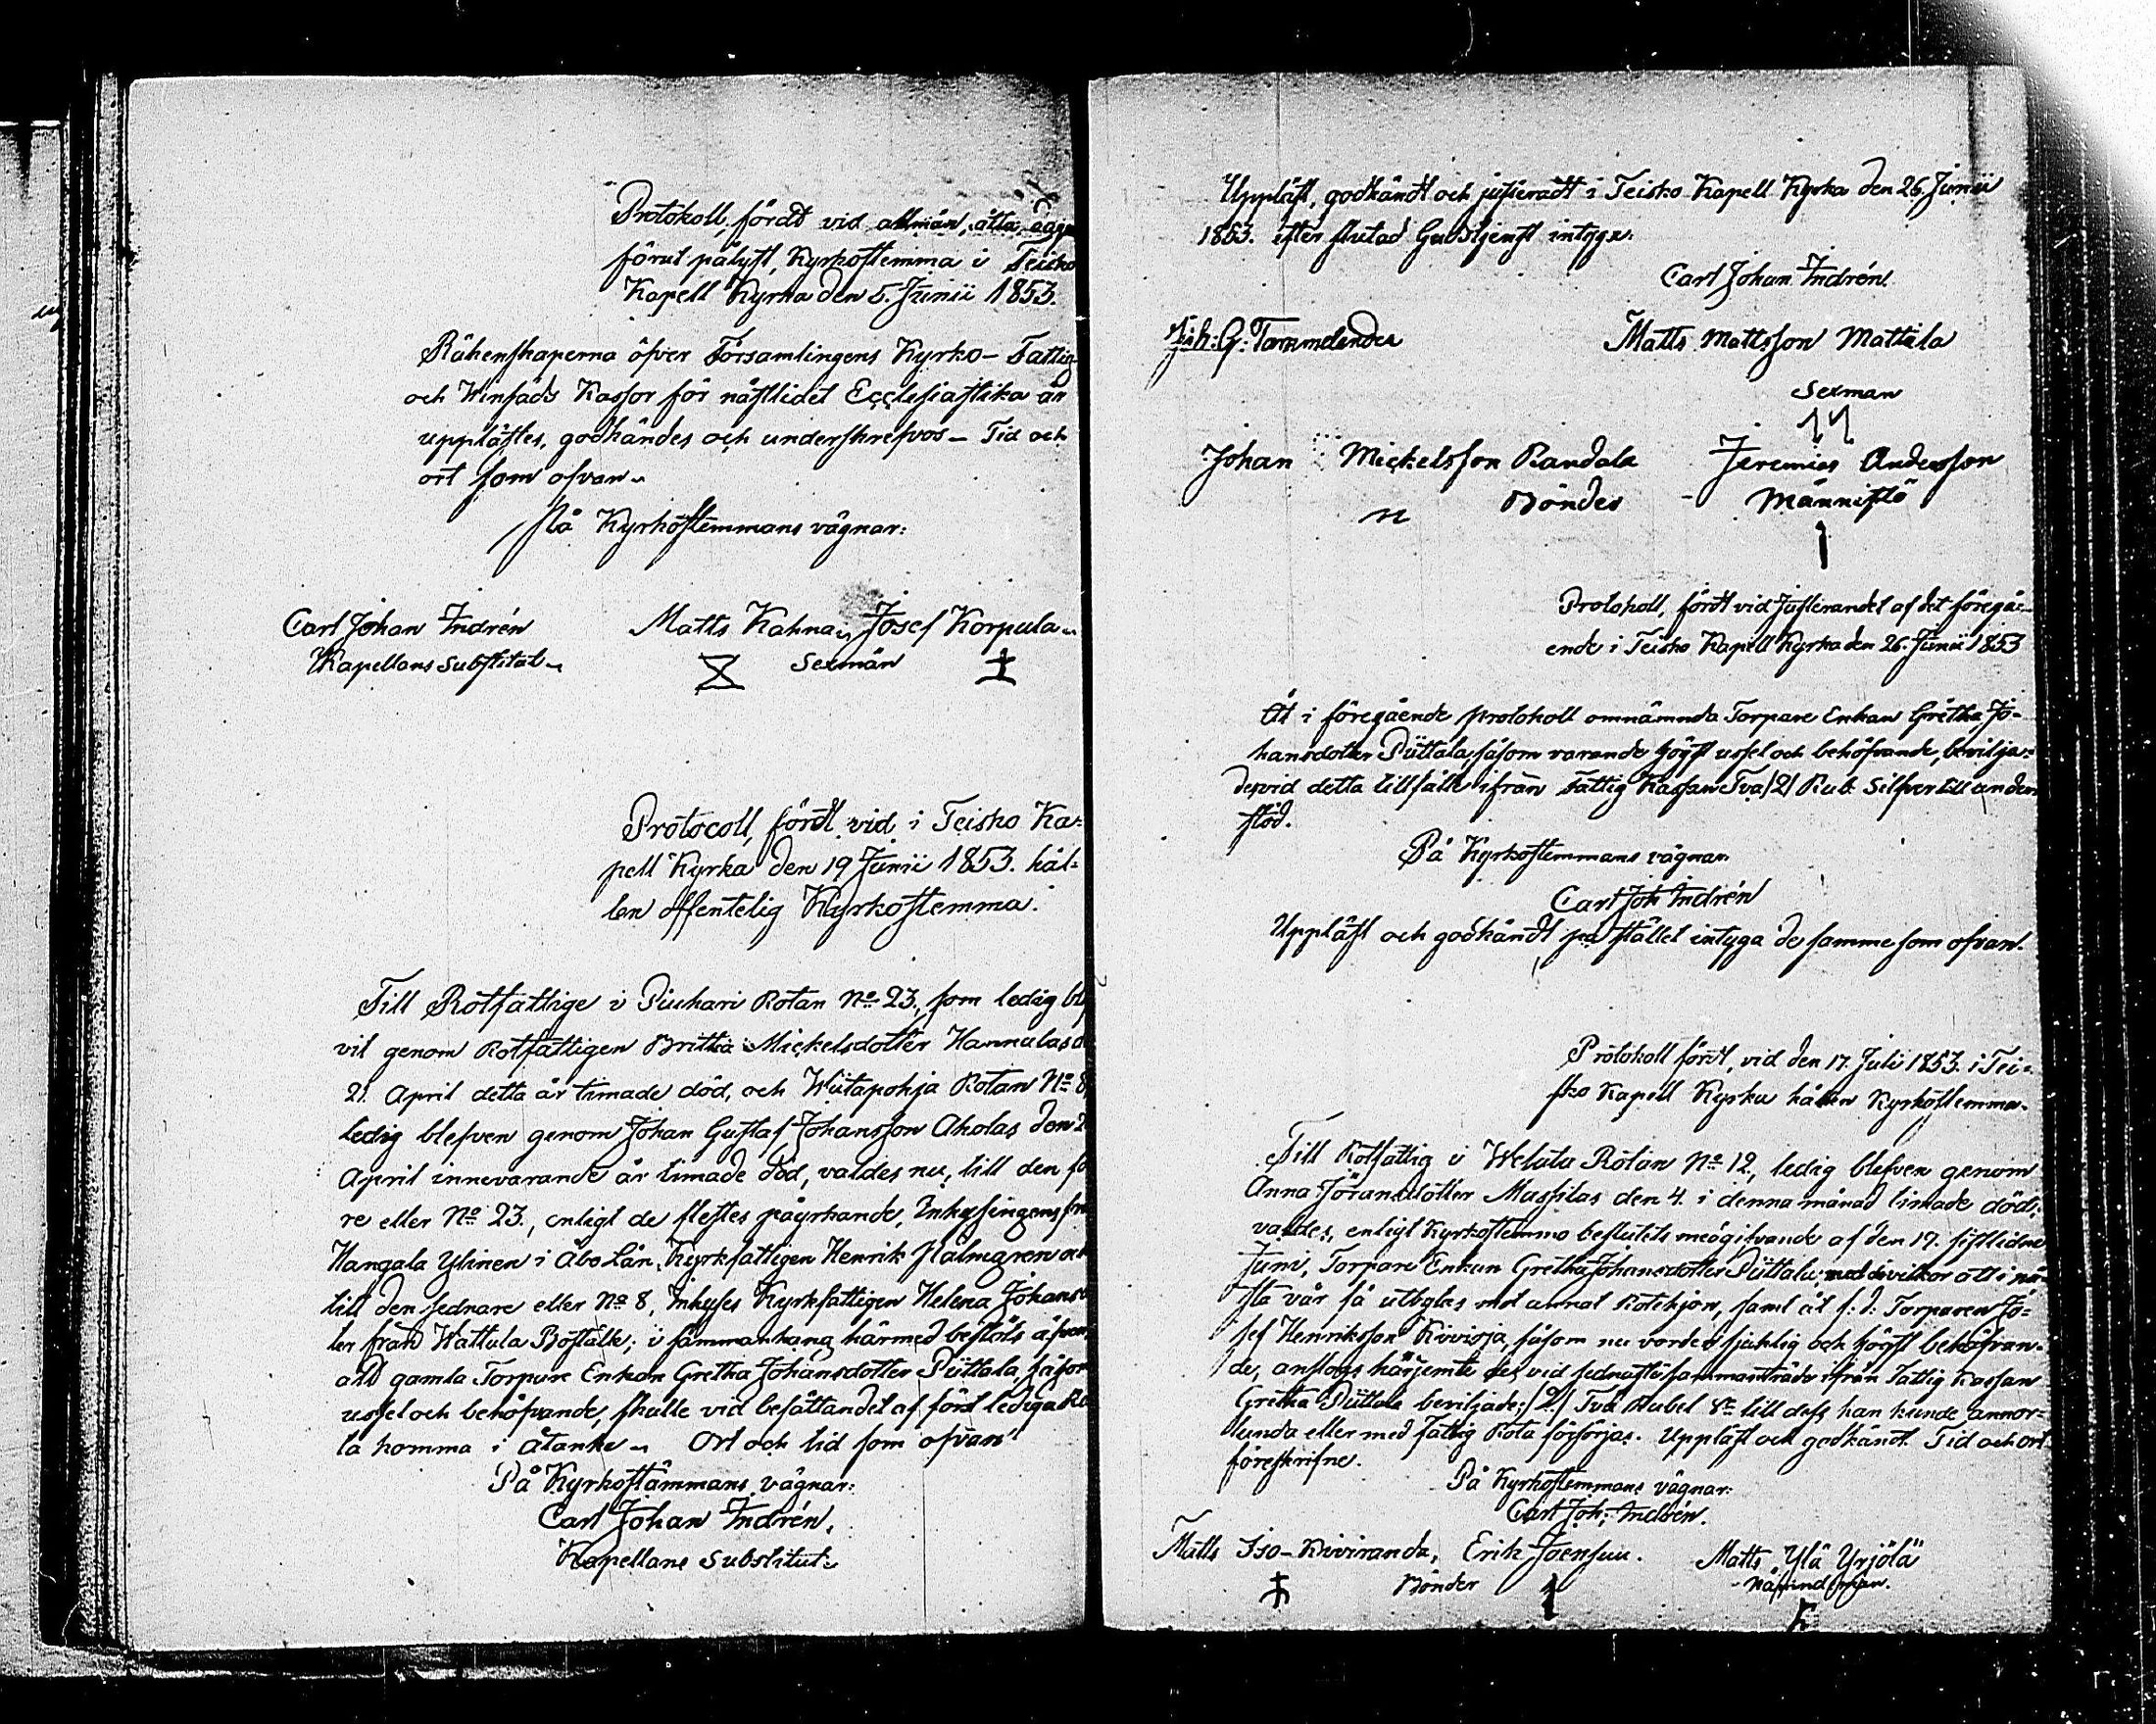 Protokoll, fördt vid allmän, åtta dagar
förut pålyst, Kyrkostemma i Teisko
Kapell Kyrka den 5. Junii 1853.
Räkenskaperna öfver Församlingens Kyrko- Fattig
och Winsäds Kassor för nästlidet Ecclesiastika år
upplästes, godkändes och underskrefvos – Tid och
ort som ofvan.
På Kyrkostemmans vägnar:
Carl Johan Indrén Matts Kahna Josef Korpula
Kapellans Substitut Sexmän
Protocoll, fördt vid i Teisko Ka-
pell Kyrka den 19 Junii 1853. hål-
len offentelig Kyrkostemma.
Till Rotfattige i Piuhari Rotan No 23, som ledig bli
vit genom Rotfattigen Britha Mickelsdotter Hannulas d
21. April detta år timade död, och Wiitapohja Rotan No 8
ledig blefven genom Johan Gustaf Johansson Aholas den 2
April innevarande år timade död, valdes nu, till den fö
re eller No 23., enligt de flestes påyrkande, Inhysingen fr
Hangala Ylinen i Åbo Län, Kyrkfattigen Henrik Hålmgren och
till den sednare eller No 8, Inhyses Kyrkfattigen Helena Johansd
ter från Wattula Boställe; i sammanhang härmed beslöts äfven
att gamla Torpare Enkan Gretha Johansdotter Piittala, såsom
ussel och behöfvande, skulle vid besättandet af först lediga Ro
ta komma i åtanke. Ort och tid som ofvan
På Kyrkostämmans vägnar:
Carl Johan Indrén.
Kapellans Substitut.
Uppläst, godkändt och justeradt i Teisko Kapell Kyrka den 26. Junii
1853. efter slutad Gudstjenst intyga:
Carl Johan Indrén.
Joh: G: Tammelander Matts Mattsson Mattila
Sexman
Johan Mickelsson Randala Jeremias Andersson
Bönder Männistö
Protokoll, fördt vid Justerandet af det föregå-
ende i Teisko Kapell Kyrka den 26. Junii 1853
Åt i föregående protokoll omnämnda Torpare Enkan Gretha Jo-
hansdotter Piittala, såsom varande högst ussel och behöfvande, bevilja-
des vid detta tillfälle ifrån Fattig Kassan Två /2/ Rub. Silfver till under
stöd.
På Kyrkostemmans vägnar:
Carl Joh Indrén
Uppläst och godkändt på stället intyga de samme som ofvan.
Protokoll fördt, vid den 17. Julii 1853. i Tei-
sko Kapell Kyrka hållen Kyrkostemma.
Till Rotfattig i Welata Rotan No 12, ledig blefven genom
Anna Göransdotter Massilas den 4. i denna månad timade död,
valdes, enligt Kyrkostemmo beslutets medgifvande af den 19. sistlidne
Juni, Torpare Enkan Gretha Johansdotter Piittala, med devilkor att i nä-
sta vår få utbytas mot annat Rotehjon, samt åt f: d: Torparen Jo-
sef Henriksson Kivioja, såsom nu vorden sjuklig och högst behöfvan-
de, anslogs härjemte de vid sednaste sammanträde ifrån Fattig Kassan
Gretha Piittala beviljade /2/ Två Rubel Sr till dess han kunde annor-
lunda eller med Fattig Rota försörjas. Uppläst och godkändt. Tid och ort
föreskrifne.
På Kyrkostemmans vägnar:
Carl Joh: Indrén.
Matts Iso-Kiviranda, Erik Joensuu. Matts Ylä Yrjölä
Bönder Nämndeman.